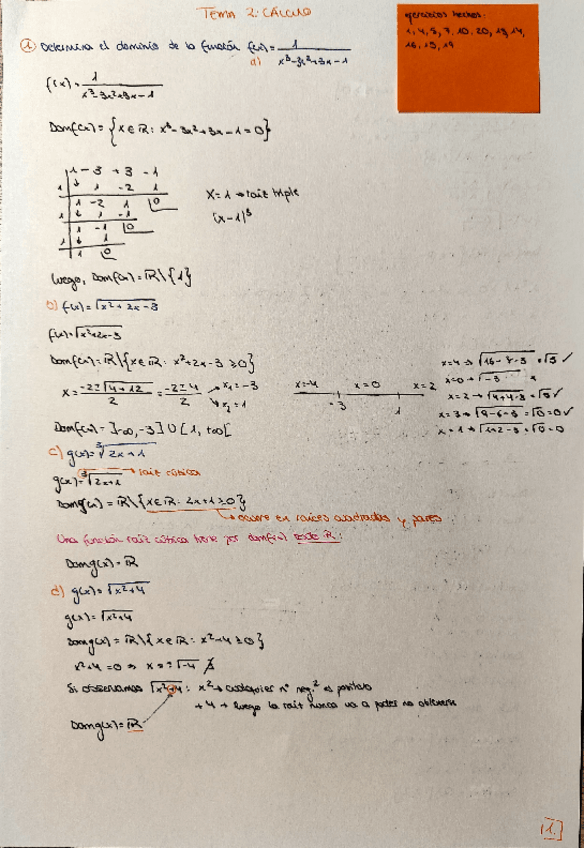 TEMA 2: CÁLCULO
ejercicios hechos:
1, 4, 5, 7, 10, 20, 13, 14,
16, 18, 19
① Determina el dominio de la función f(x) = 1 / x³-3x²+3x-1
a)
f(x) = 1 / x³-3x²+3x-1
Domf(x) = {x ∈ ℝ: x³-3x²+3x-1 = 0}
1 -3 +3 -1
1 ↓ 1 -2 1
1 -2 1 |0
1 ↓ 1 -1
1 -1 |0
1 ↓ 1
1 |0
x = 1 → raíz triple
(x-1)³
luego, Domf(x) = ℝ\{1}
b) f(x) = √x²+2x-3
f(x) = √x²+2x-3
Domf(x) = ℝ\{x ∈ ℝ: x²+2x-3 ≥ 0}
x = -2±√4+12 / 2 = -2±4 / 2 → x₁ = -3
→ x₂ = 1
x=-4 x=0 x=2
-3 1
x=0 → √-3 ×
x=2 → √4+4-3 = √5 ✓
x=1 → √1+2-3 = √0 = 0
Domf(x) = ]-∞, -3] ∪ [1, +∞[
c) g(x) = ³√2x+1
g(x) = ³√2x+1 → raíz cúbica
Domg(x) = ℝ\{x ∈ ℝ: 2x+1 ≥ 0}
→ ocurre en raíces cuadradas y pares
Una función raíz cúbica tiene por domf(x) todo ℝ:
Domg(x) = ℝ
d) g(x) = √x²+4
g(x) = √x²+4
Domg(x) = ℝ\{x ∈ ℝ: x²+4 ≥ 0}
x²+4 = 0 ⇒ x = ±√-4 ∄
Si observamos √x²+4 : x² → cualquier nº neg.² es positivo
+4 → luego la raíz nunca va a poder no obtenerse
Domg(x) = ℝ
[1.]